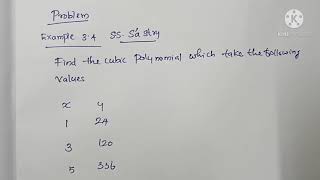 Problem
Example 3.4 SS. Sastry
Find the cubic polynomial which take the following
values
x y
1 24
3 120
5 336